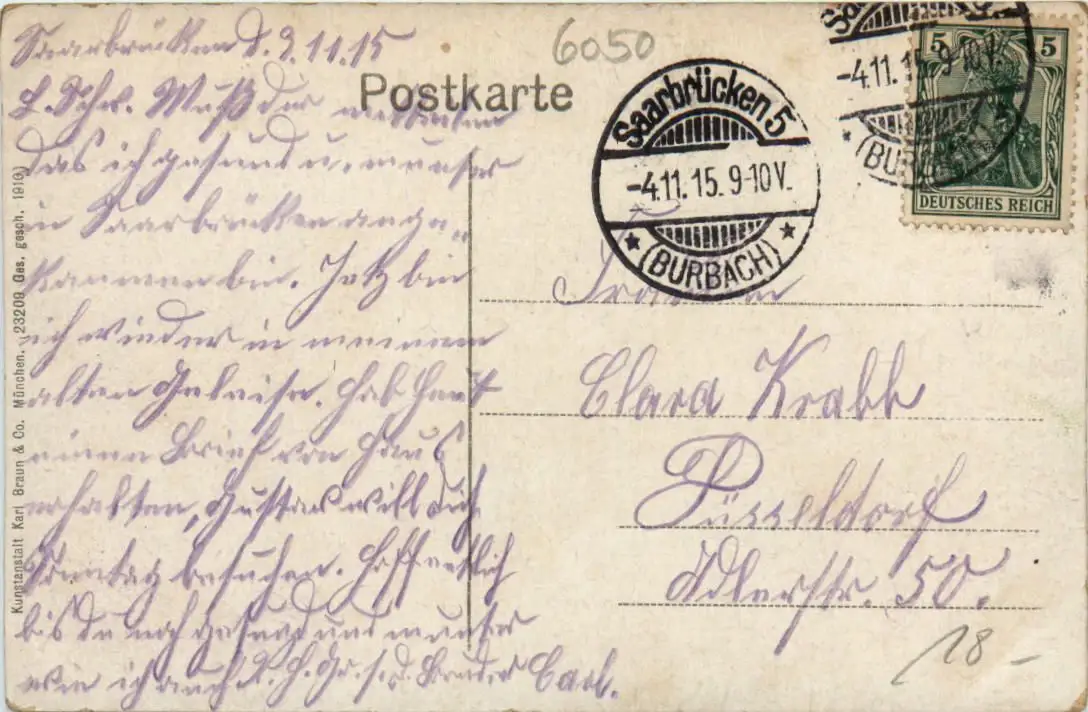 Saarbrücken d. 3.11.15
L. Schw. Muß dir mitteilen
das ich gesund u. munter
in Saarbrücken ange„
kommen bin. Jetz bin
ich wieder in meinem
alten Geleise. Hab heut
einen Brief von Haus
erhalten, Gustav will dich
Sonntag besuchen. Hoffentlich
bis du noch gesund und munter
wie ich auch. d. Bruder Carl.
Postkarte
6050
Saarbrücken 5
-4.11.15. 9-10V.
(BURBACH)
-4.11.15. 9-10V.
(BURBACH)
5 5
DEUTSCHES REICH
Fräulein
Clara Krabb
Düsseldorf
Adlerstr. 50.
18-
Kunstanstalt Karl Braun & Co. München. (23209 Ges. gesch. 1910)